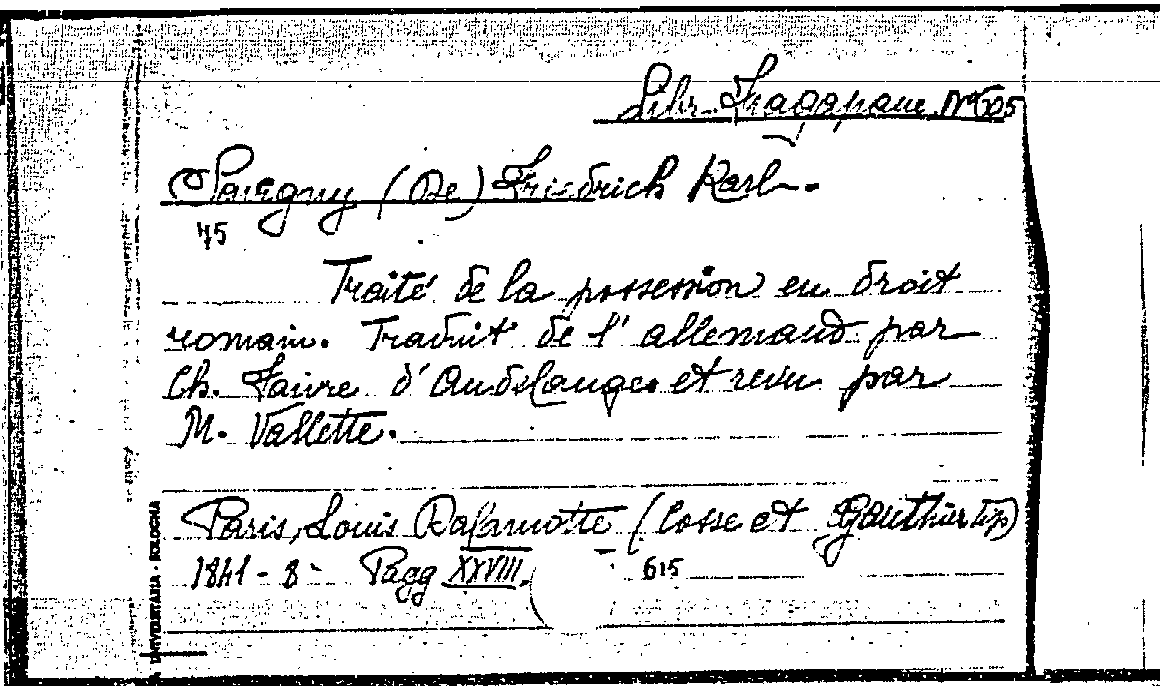 Libr. Fragapane N° 605
Savigny (De) Friedrich Karl.
45
Traité de la possession en droit
romain. Traduit de l'allemand par
Ch. Faivre d'Audelange et revu par
M. Vallette.
Paris, Louis Delamotte (Cosse et Gauthier tip)
1841 - 8° Pagg XXVIII. 615
UNIVERSITARIA - BOLOGNA